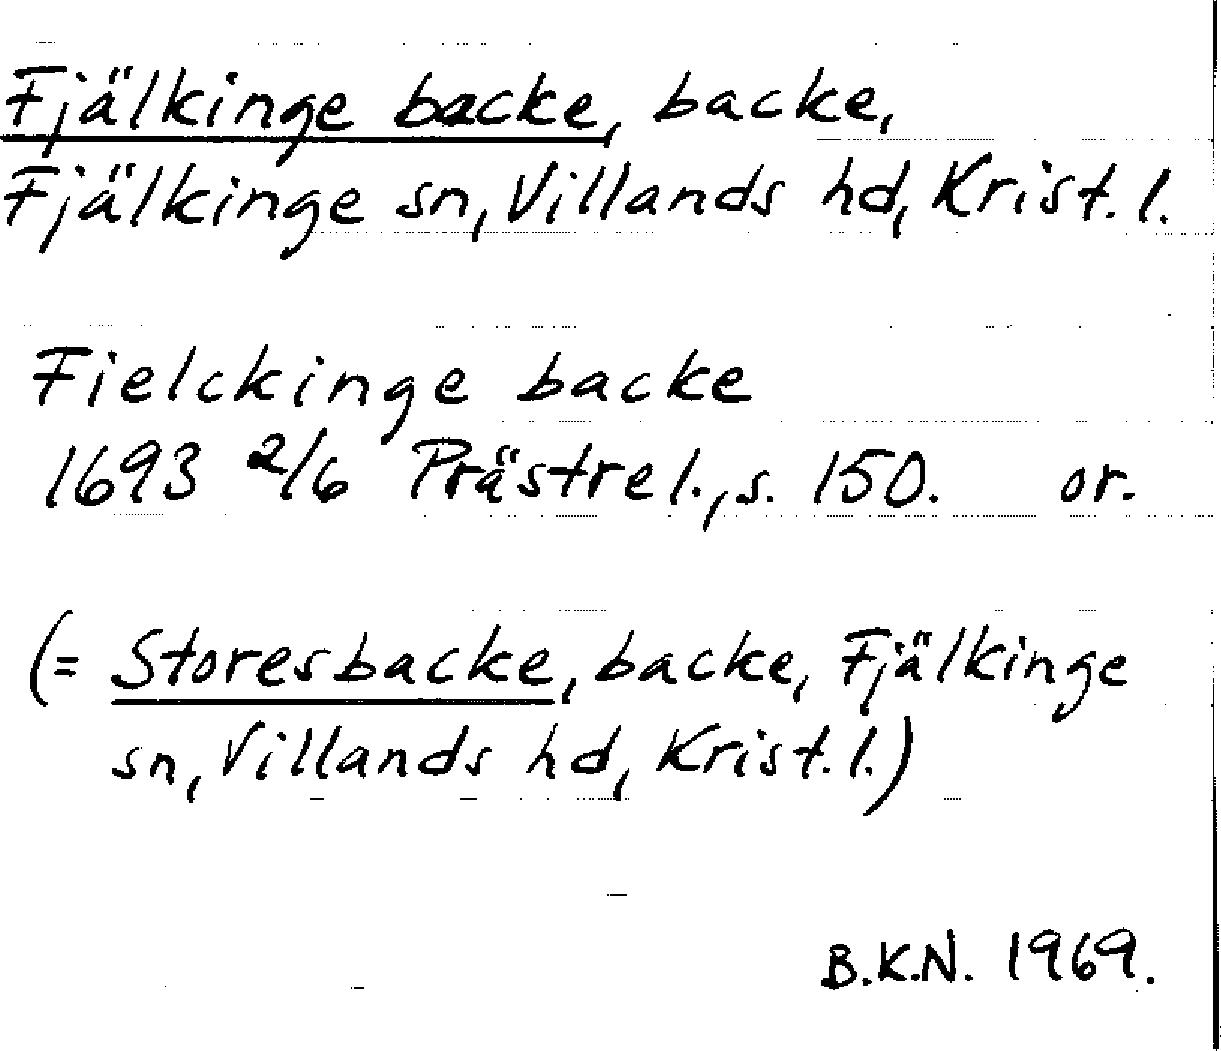 Fjälkinge backe, backe,
Fjälkinge sn, Villands hd, Krist. l.
Fielckinge backe
1693 2/6 Prästrel., s. 150. or.
(= Storesbacke, backe, Fjälkinge
sn, Villands hd, Krist. l.)
B.K.N. 1969.